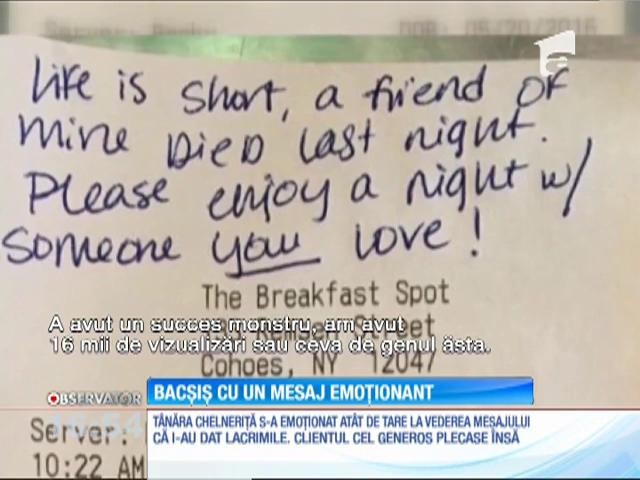 Life is short, a friend of
mine Died last night.
Please enjoy a night w/
someone you love!
The Breakfast Spot
Street
Cohoes, NY 12047
A avut un succes monstru, am avut
16 mii de vizualizări sau ceva de genul ăsta.
OBSERVATOR
BACȘIȘ CU UN MESAJ EMOȚIONANT
TÂNĂRA CHELNERIȚĂ S-A EMOȚIONAT ATÂT DE TARE LA VEDEREA MESAJULUI
CĂ I-AU DAT LACRIMILE. CLIENTUL CEL GENEROS PLECASE ÎNSĂ
Server:
10:22 AM